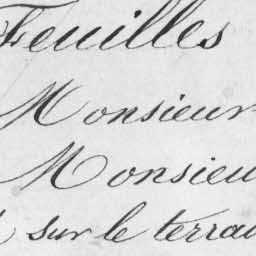 Feuilles
Monsieur
Monsieu
sur le terrai